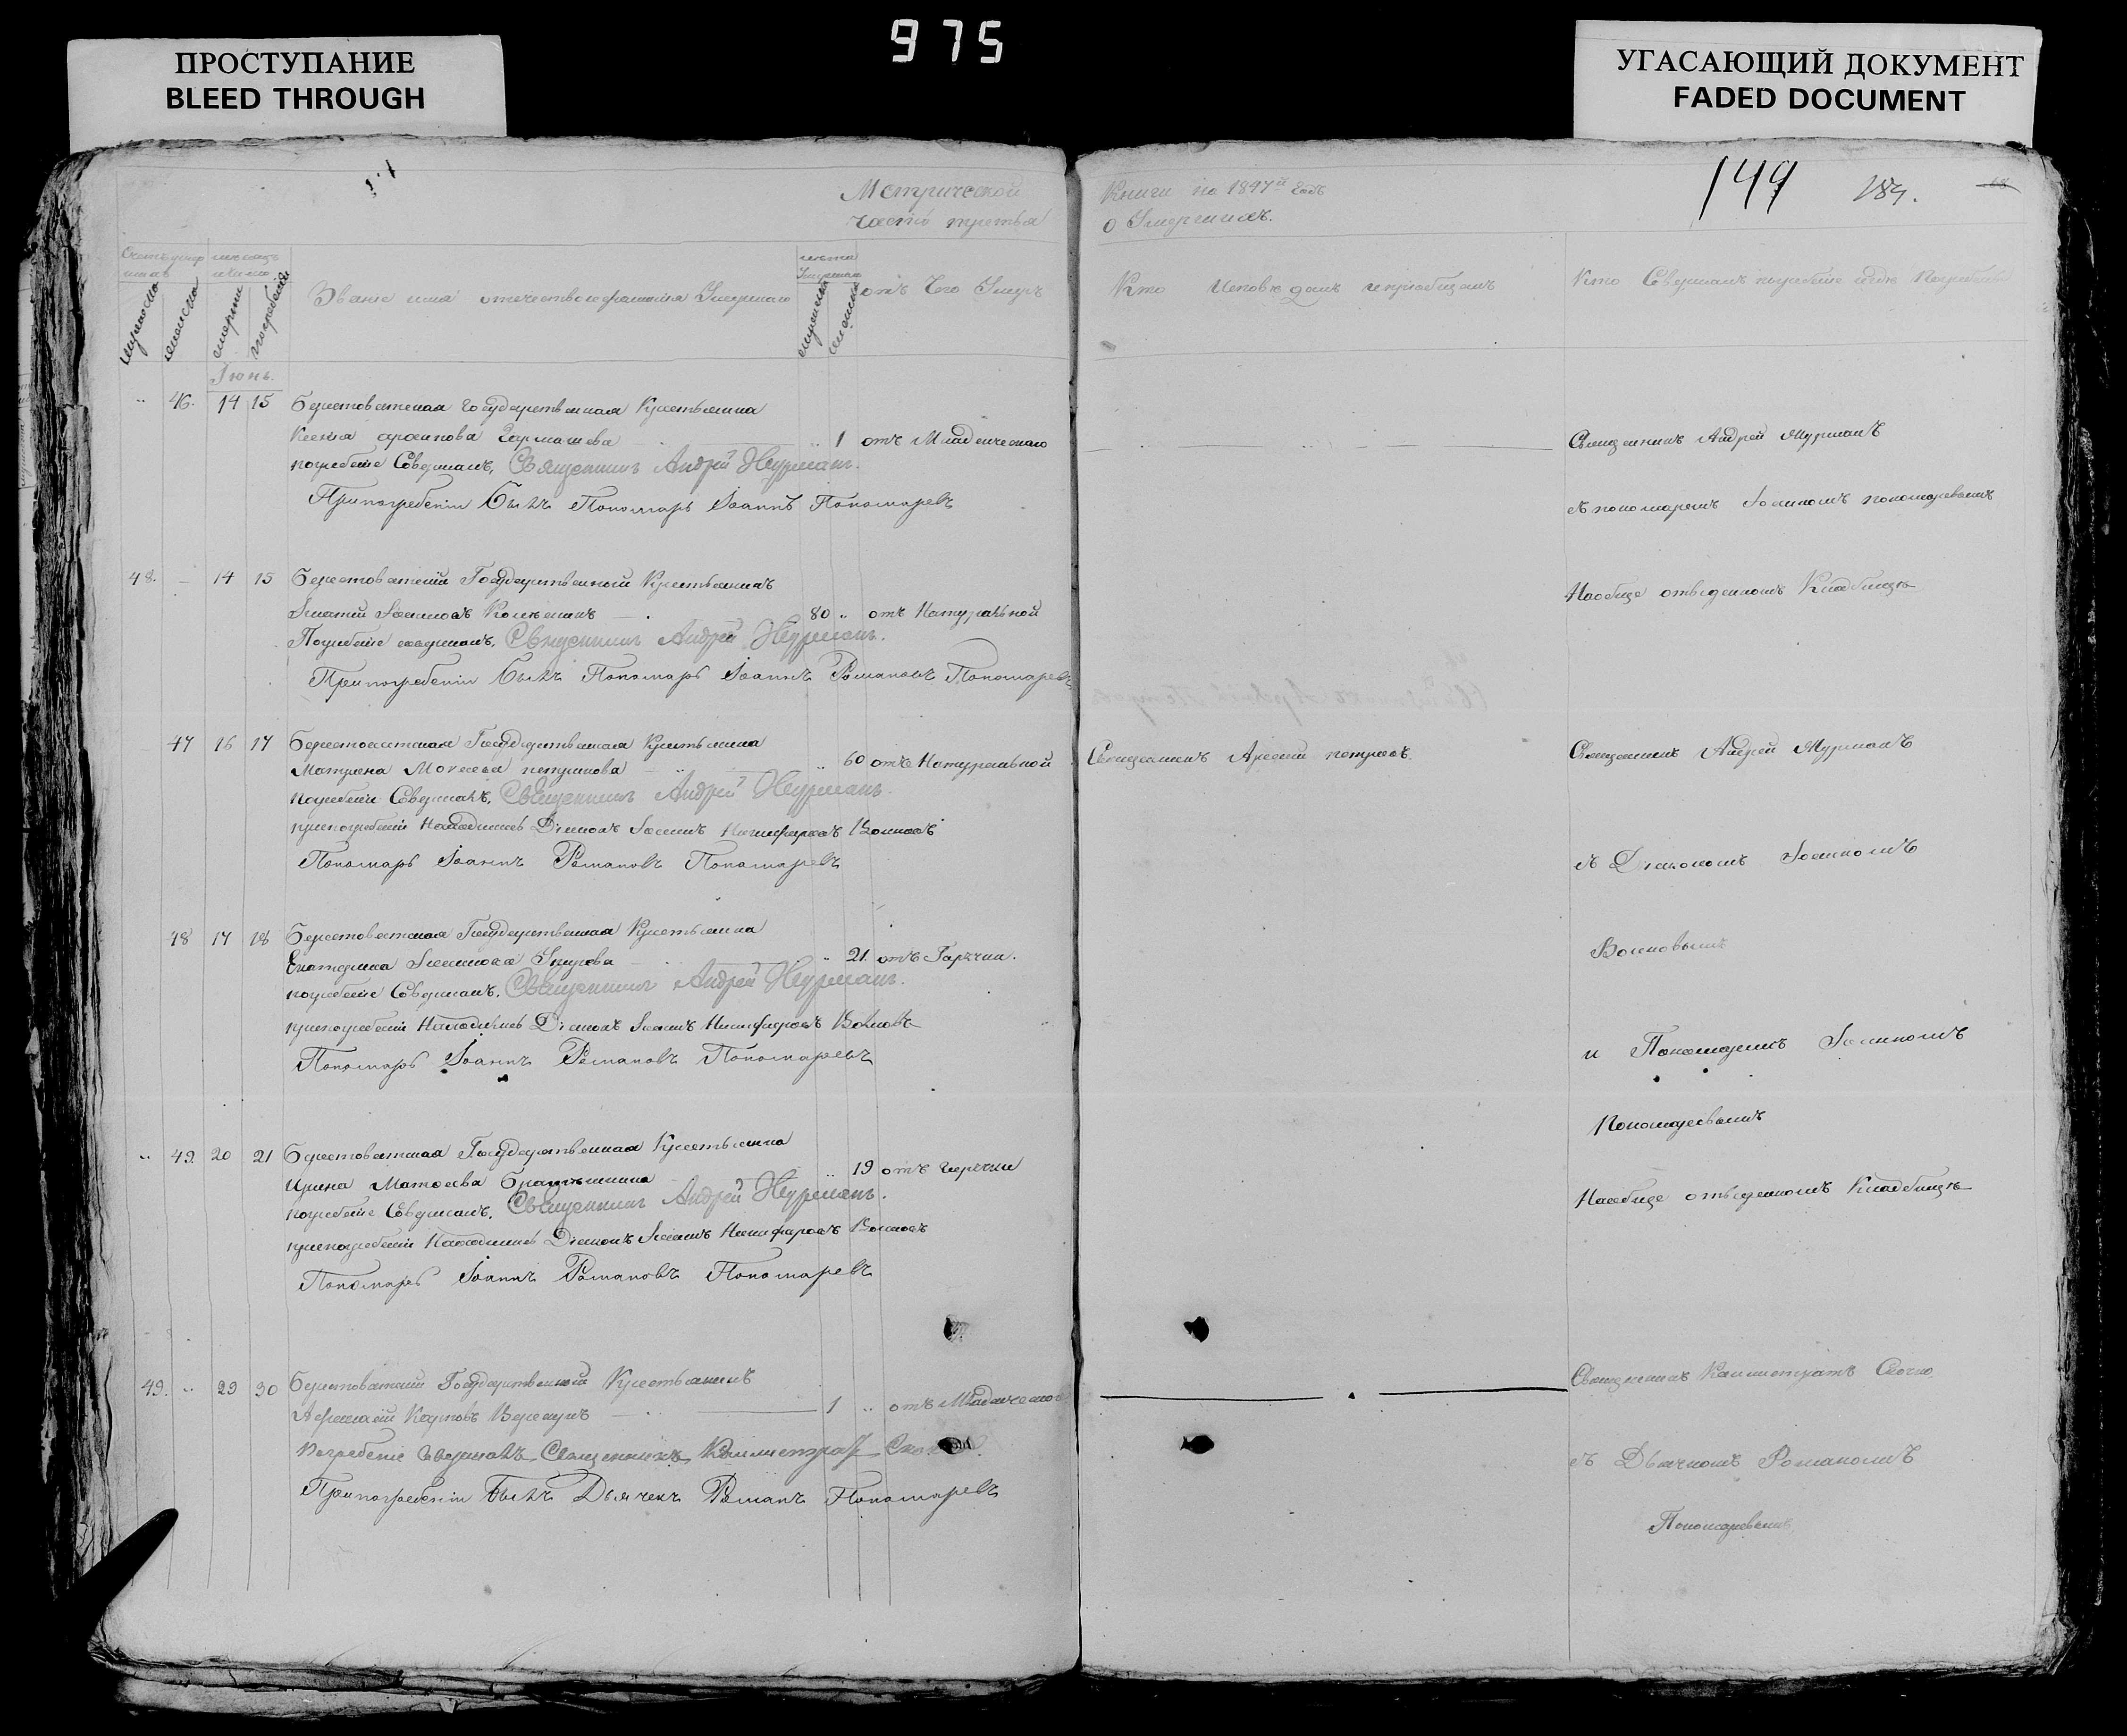 975
ПРОСТУПАНИЕ
BLEED THROUGH
УГАСАЮЩИЙ ДОКУМЕНТ
FADED DOCUMENT
149 189.
Метрической Книги на 1847й Годъ
часть третья о Умершихъ.
мужеска
женска
смерти
погребенія
Званіе имя отчество и фамилія Умершаго
лѣта Умершаго
мужеска
женска
отъ Чего Умеръ
Кто Исповѣдалъ и пріобщалъ
Кто Совершалъ погребеніе и гдѣ Погребены
Іюнь.
46. 14 15 Берестоватская Государственная Крестьянка
Ксенія 1 отъ Младенческаго
погребеніе Совершалъ, Священникъ Андрей Журманъ.
При погребеніи былъ Пономарь Іоаннъ Пономаревъ
Священникъ Андрей Журманъ
съ пономаремъ Іоанномъ пономаревымъ
48. 14 15 Берестоватскій Государственный Крестьянинъ
Игнатій 80 отъ Натуральной
Погребеніе совершалъ, Священникъ Андрей Журманъ.
При погребеніи былъ Пономарь Іоаннъ Романовъ Пономаревъ
На обще отведенномъ Кладбищѣ
47 16 17 Берестоватская Государственная Крестьянка
Матрена Моисеева петрикова 60 отъ Натуральной
Священникъ Арсеній петровъ.
Священникъ Андрей Журманъ
погребеніе Совершалъ, Священникъ Андрей Журманъ.
при погребеніи Находились Діаконъ Іоаннъ Никифоровъ Волковъ
Пономарь Іоаннъ Романовъ Пономаревъ
съ Діакономъ Іоанномъ
Волковымъ
48 17 18 Берестоватская Государственная Крестьянка
Екатерина 21 отъ Гарячки.
погребеніе Совершалъ, Священникъ Андрей Журманъ.
при погребеніи Находились Діаконъ Іоаннъ Никифоровъ Волковъ
Пономарь Іоаннъ Романовъ Пономаревъ
и Пономаремъ Іоанномъ
Пономаревымъ
49. 20 21 Берестоватская Государственная Крестьянка
Ирина Матѳеева 19 отъ горячки
погребеніе Совершалъ, Священникъ Андрей Журманъ.
при погребеніи Находились Діаконъ Іоаннъ Никифоровъ Волковъ
Пономарь Іоаннъ Романовъ Пономаревъ
На обще отведенномъ Кладбищѣ
49. 29 30 Берестоватскій Государственный Крестьянинъ
Карповъ 1 отъ Младенческой
Погребеніе совершалъ Священникъ Каллистратъ
При погребеніи былъ Дьячекъ Романъ Пономаревъ
Священникъ Каллистратъ
съ Дьячкомъ Романомъ
Пономаревымъ